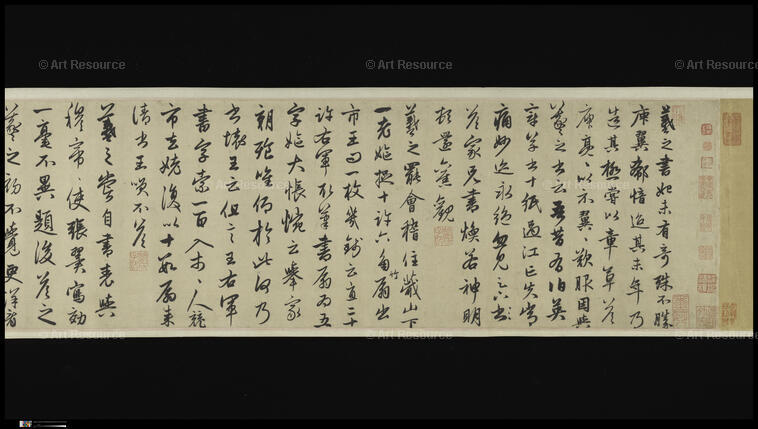 羲之書始未有奇殊不勝
庾翼郗愔迨其末年乃
造其極嘗以章草荅
庾亮〻以示翼〻歎服因與
羲之書云吾昔有伯英
章草書十紙過江亡失常
痛妙迹永絕忽見足下
荅家兄書煥若神明
頓還舊觀
羲之罷會稽住蕺山下
一老嫗捉十許六角竹扇出
市王問一枚幾錢云直二十
許右軍取筆書扇為五
字嫗大悵惋云舉家
朝飧惟仰於此何乃
書壞王云但言王右軍
書字索一百入市〻人競
市去姥復以十數扇來
請書王笑不荅
羲之嘗自書表與
穆帝〻使張翼寫効
一毫不異題後荅之
羲之初不覺更詳看
© Art Resource
© Art Resource
© Art Resource
© Art Resource
© Art Resource
© Art Resource